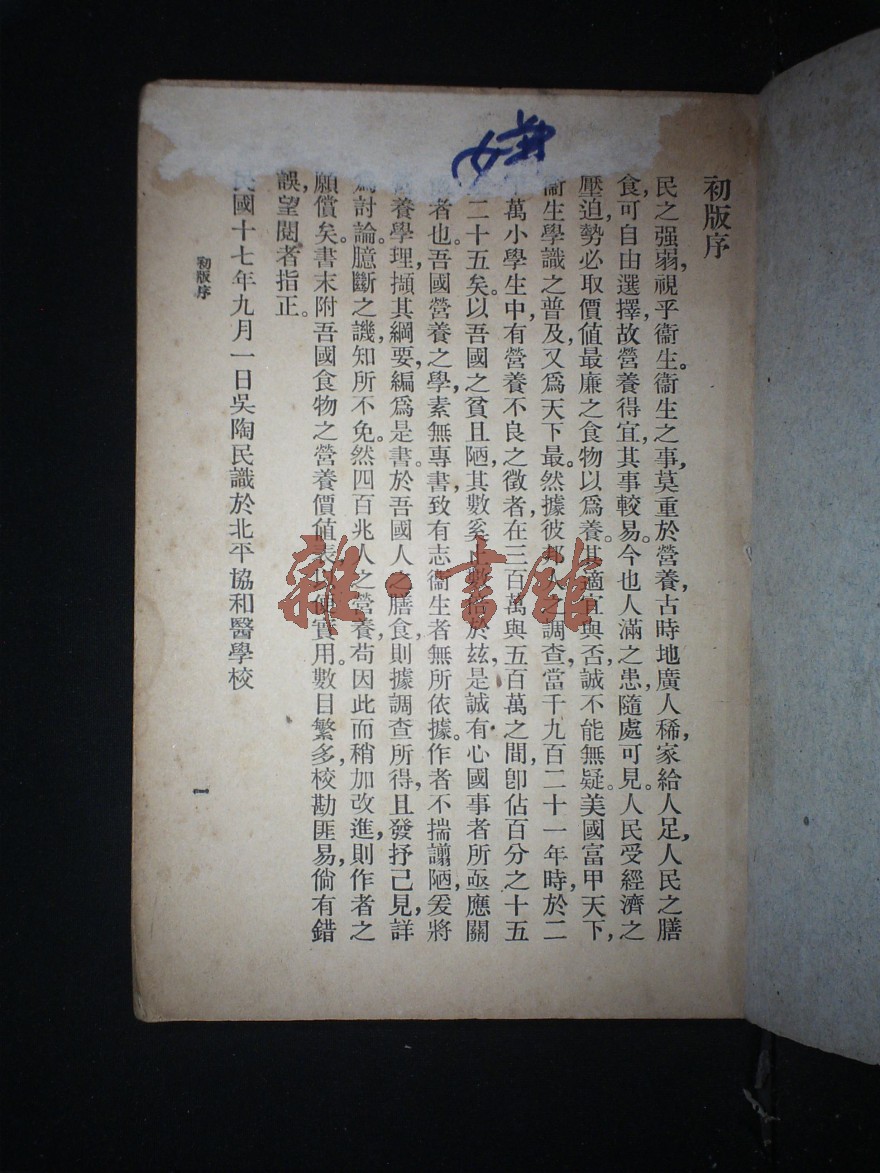 初版序
民之强弱，視乎衞生。衞生之事，莫重於營養，古時地廣人稀，家給人足，人民之膳
食，可自由選擇，故營養得宜，其事較易。今也人滿之患，隨處可見。人民受經濟之
壓迫，勢必取價值最廉之食物以爲養。其適宜與否，誠不能無疑。美國富甲天下，
衞生學識之普及，又爲天下最。然據彼邦之調查，當千九百二十一年時，於二
萬小學生中，有營養不良之徵者，在三百萬與五百萬之間，卽佔百分之十五
二十五矣。以吾國之貧且陋，其數奚止於玆，是誠有心國事者所亟應關
者也。吾國營養之學，素無專書，致有志衞生者無所依據。作者不揣譾陋，爰將
養學理，擷其綱要，編爲是書。於吾國人之膳食，則據調查所得，且發抒己見，詳
爲討論。臆斷之譏，知所不免。然四百兆人之營養，苟因此而稍加改進，則作者之
願償矣。書末附吾國食物之營養價值表以便實用。數目繁多，校勘匪易，倘有錯
誤，望閱者指正。
民國十七年九月一日吳陶民識於北平協和醫學校
初版序
一
雜·書館